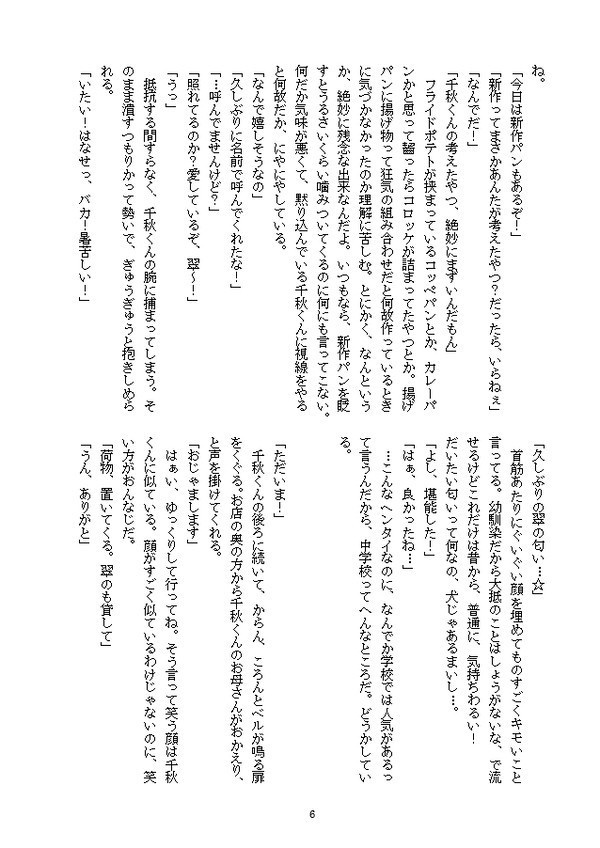 ね。
「今日は新作パンもあるぞ！」
「新作ってまさかあんたが考えたやつ？だったら、いらねぇ」
「なんでだ！」
「千秋くんの考えたやつ、絶妙にまずいんだもん」
　フライドポテトが挟まっているコッペパンとか、カレーパ
ンかと思って齧ったらコロッケが詰まってたやつとか。揚げ
パンに揚げ物って狂気の組み合わせだと何故作っているとき
に気づかなかったのか理解に苦しむ。とにかく、なんという
か、絶妙に残念な出来なんだよ。いつもなら、新作パンを貶
すとうるさいくらい噛みついてくるのに何にも言ってこない。
何だか気味が悪くて、黙り込んでいる千秋くんに視線をやる
と何故だか、にやにやしている。
「なんで嬉しそうなの」
「久しぶりに名前で呼んでくれたな！」
「…呼んでませんけど？」
「照れてるのか？愛しているぞ、翠～！」
「うっ」
　抵抗する間すらなく、千秋くんの腕に捕まってしまう。そ
のまま潰すつもりかって勢いで、ぎゅうぎゅうと抱きしめら
れる。
「いたい！はなせっ、バカ！暑苦しい！」
「久しぶりの翠の匂い…☆」
　首筋あたりにぐいぐい顔を埋めてものすごくキモいこと
言ってる。幼馴染だから大抵のことはしょうがないな、で流
せるけどこれだけは昔から、普通に、気持ちわるい！
だいたい匂いって何なの、犬じゃあるまいし…。
「よし、堪能した！」
「はぁ、良かったね…」
　…こんなヘンタイなのに、なんでか学校では人気があるっ
て言うんだから、中学校ってへんなところだ。どうかしてい
る。
「ただいま！」
　千秋くんの後ろに続いて、からん、ころんとベルが鳴る扉
をくぐる。お店の奥の方から千秋くんのお母さんがおかえり、
と声を掛けてくれる。
「おじゃまします」
　はぁい、ゆっくりして行ってね。そう言って笑う顔は千秋
くんに似ている。顔がすごく似ているわけじゃないのに、笑
い方がおんなじだ。
「荷物、置いてくる。翠のも貸して」
「うん、ありがと」
6